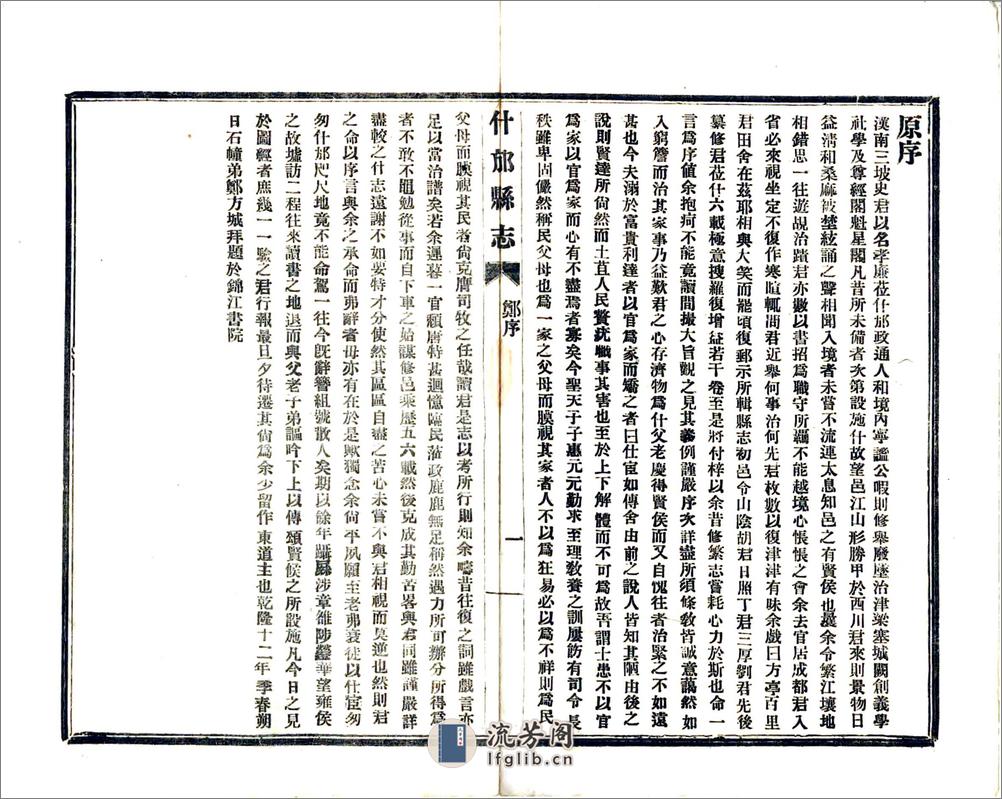 原序
漢南三坡史君以名孝廉莅什邡政通人和境內寧謐公暇則修舉廢墜治津梁塞城闕創義學
社學及尊經閣魁星閣凡昔所未備者次第設施什故望邑江山形勝甲於西川君來則景物日
益淸和桑麻被埜絃誦之聲相聞入境者未嘗不流連太息知邑之有賢侯也曩余令繁江壤地
相錯思一往遊覘治蹟君亦數以書招爲職守所羈不能越境心悵悵之會余去官居成都君入
省必來視坐定不復作寒暄輒問君近舉何事治何先君枚數以復津津有味余戲曰方亭百里
君田舍在茲耶相與大笑而罷頃復郵示所輯縣志初邑令山陰胡君日照丁君三厚劉君先後
纂修君莅什六載極意搜羅復增益若干卷至是將付梓以余昔修繁志嘗耗心力於斯也命一
言爲序値余抱疴不能竟讀間撮大旨觀之見其義例謹嚴序次詳盡所須條敎皆誠意藹然如
入窮簷而治其家事乃益歎君之心存濟物爲什父老慶得賢侯而又自愧往者治繁之不如遠
甚也今夫溺於富貴利達者以官爲家而矯之者曰仕宦如傳舍由前之說人皆知其陋由後之
說則賢達所尙然而土苴人民贅疣職事其害也至於上下解體而不可爲故吾謂士患不以官
爲家以官爲家而心有不盡焉者寡矣今聖天子子惠元元勤求至理敎養之訓屢飭有司令長
秩雖卑固儼然稱民父母也爲一家之父母而膜視其家者人不以爲狂易必以爲不祥則爲民
什邡縣志
鄭序
一
父母而膜視其民者尙克膺司牧之任哉讀君是志以考所行則知余疇昔往復之詞雖戲言亦
足以當治譜矣若余遲暮一官頹唐特甚迴憶臨民蒞政鹿鹿無足稱然遇力所可辦分所得爲
者不敢不黽勉從事而自下車之始謀修邑乘歷五六載然後克成其勤苦畧與君同雖謹嚴詳
盡較之什志遠謝不如要特才分使然其區區自盡之苦心未嘗不與君相視而莫逆也然則君
之命以序言與余之承命而弗辭者毋亦有在於是歟獨念余尙平夙願至老弗衰徒以仕宦匆
匆什邡咫尺地竟不能命駕一往今旣辭簪組號散人矣期以餘年躡屩涉章雒陟鎣華望雍侯
之故墟訪二程往來讀書之地退而與父老子弟謳吟下上以傳頌賢侯之所設施凡今日之見
於圖經者庶幾一一驗之君行報最旦夕待遷其尙爲余少留作東道主也乾隆十二年季春朔
日石幢弟鄭方城拜題於錦江書院
流芳阁
lfglib.cn